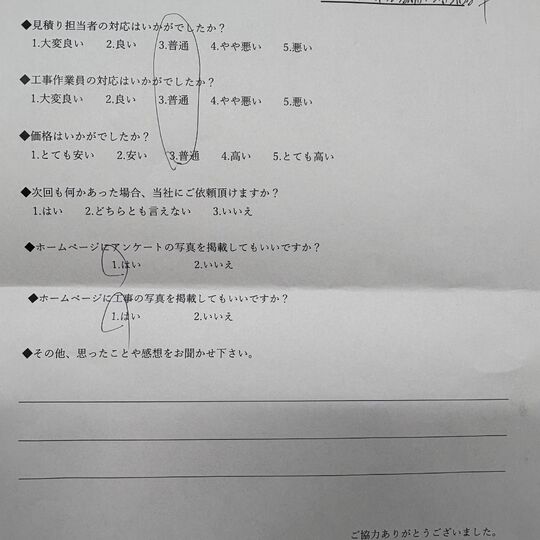 ◆見積り担当者の対応はいかがでしたか？
1.大変良い　2.良い　3.普通　4.やや悪い　5.悪い
◆工事作業員の対応はいかがでしたか？
1.大変良い　2.良い　3.普通　4.やや悪い　5.悪い
◆価格はいかがでしたか？
1.とても安い　2.安い　3.普通　4.高い　5.とても高い
◆次回も何かあった場合、当社にご依頼頂けますか？
1.はい　2.どちらとも言えない　3.いいえ
◆ホームページにアンケートの写真を掲載してもいいですか？
1.はい　2.いいえ
◆ホームページに工事の写真を掲載してもいいですか？
1.はい　2.いいえ
◆その他、思ったことや感想をお聞かせ下さい。
ご協力ありがとうございました。